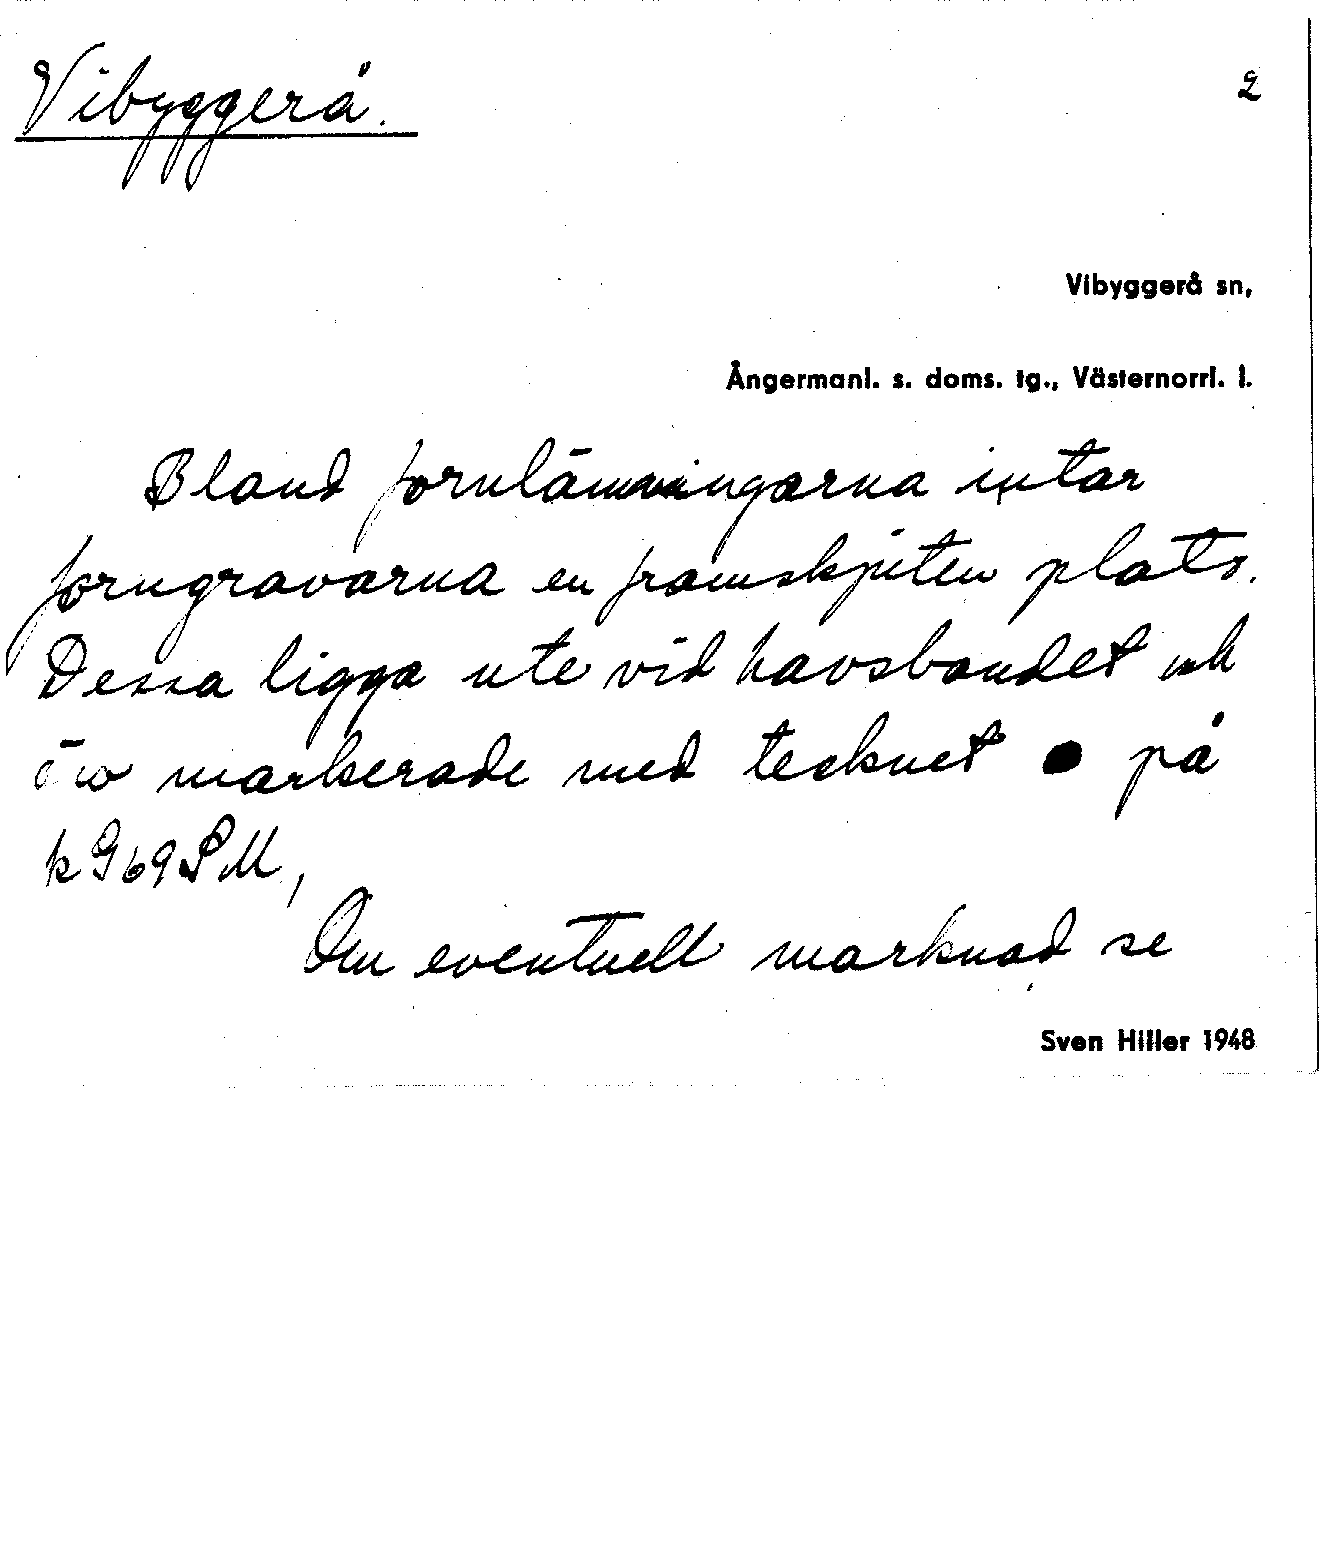 Vibyggerå. 2
Vibyggerå sn,
Ångermanl. s. doms. tg., Västernorrl. l.
Bland fornlämningarna intar
forngravarna en framskjuten plats.
Dessa ligga ute vid havsbandet och
äro markerade med tecknet ● på
k G69SM,
Om eventuell marknad se
Sven Hiller 1948